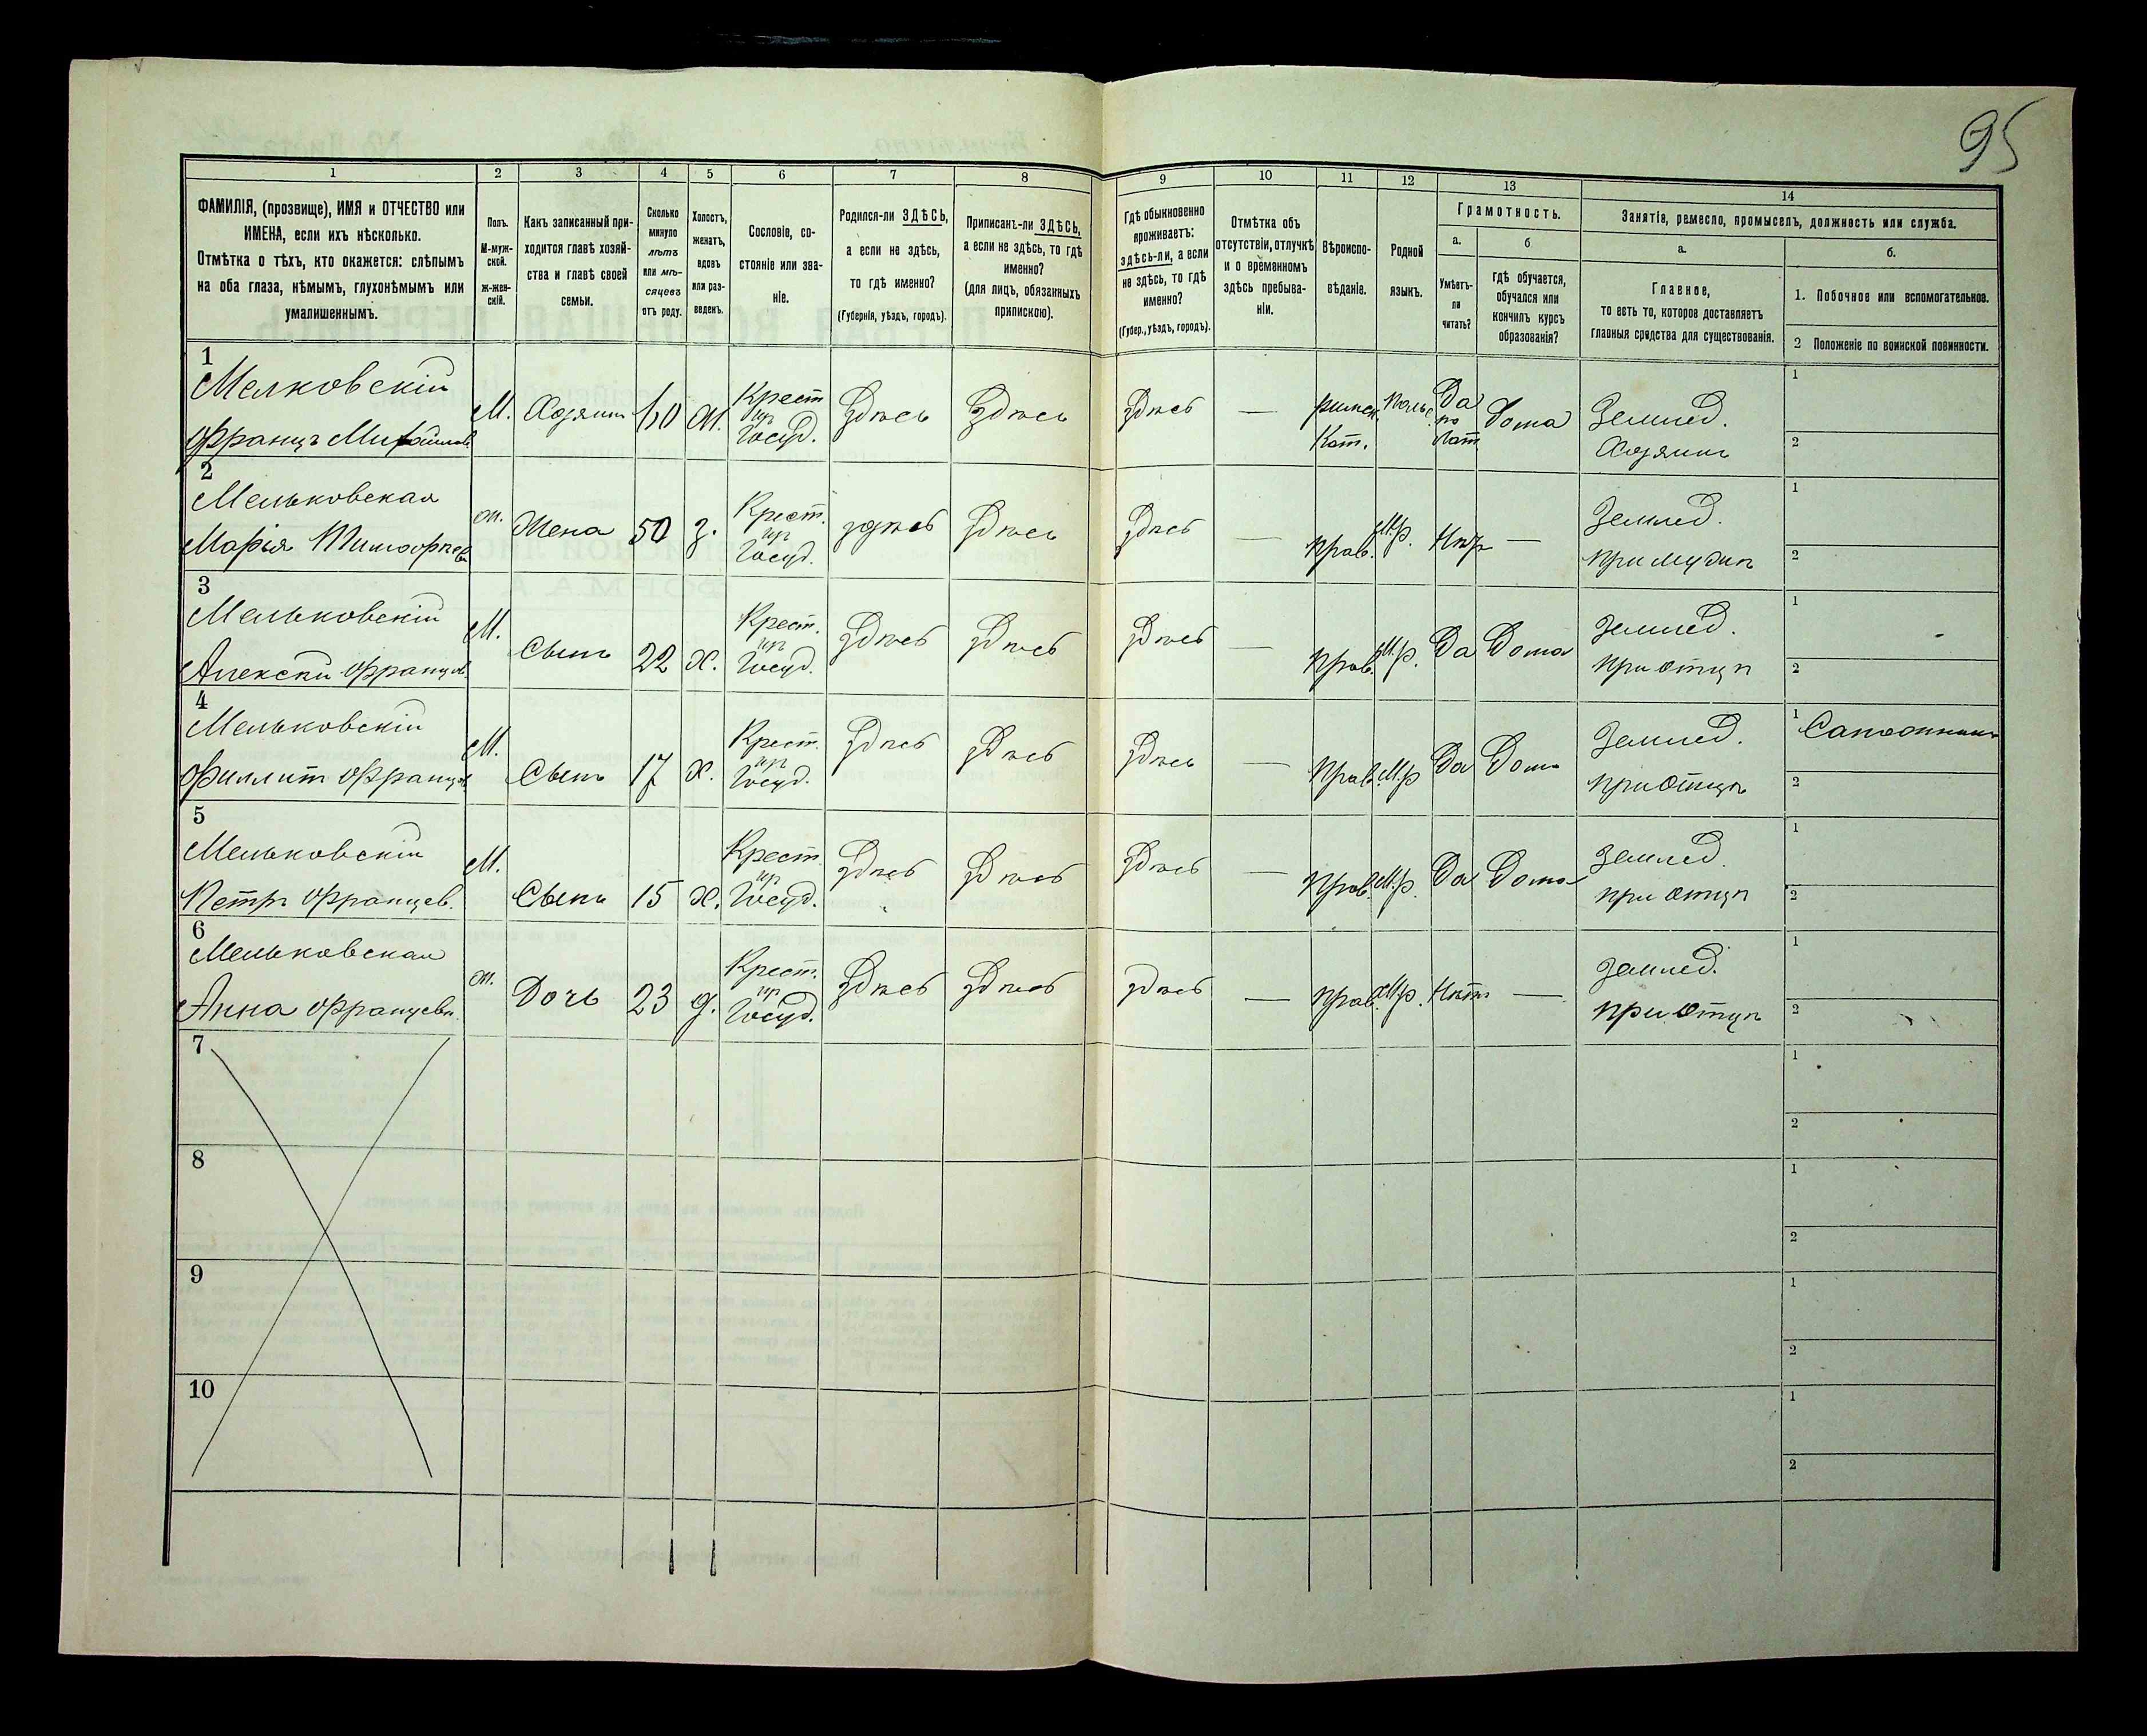 95
1 2 3 4 5 6 7 8 9 10 11 12 13 14
ФАМИЛІЯ, (прозвище), ИМЯ и ОТЧЕСТВО или
ИМЕНА, если ихъ нѣсколько.
Отмѣтка о тѣхъ, кто окажется: слѣпымъ
на оба глаза, нѣмымъ, глухонѣмымъ или
умалишеннымъ.
Полъ.
М-муж-
ской.
ж-жен-
скій.
Какъ записанный при-
ходится главѣ хозяй-
ства и главѣ своей
семьи.
Сколько
минуло
лѣтъ
или мѣ-
сяцевъ
отъ роду.
Холостъ,
женатъ,
вдовъ
или раз-
веденъ.
Сословіе, со-
стояніе или зва-
ніе.
Родился-ли ЗДѢСЬ,
а если не здѣсь,
то гдѣ именно?
(Губернія, уѣздъ, городъ).
Приписанъ-ли ЗДѢСЬ,
а если не здѣсь, то гдѣ
именно?
(для лицъ, обязанныхъ
припискою).
Гдѣ обыкновенно
проживаетъ:
здѣсь-ли, а если
не здѣсь, то гдѣ
именно?
(Губер., уѣздъ, городъ).
Отмѣтка объ
отсутствіи, отлучкѣ
и о временномъ
здѣсь пребыва-
ніи.
Вѣроиспо-
вѣданіе.
Родной
языкъ.
Грамотность.
а.
Умѣетъ-
ли
читать?
б.
гдѣ обучается,
обучался или
кончилъ курсъ
образованія?
Занятіе, ремесло, промыселъ, должность или служба.
а.
Главное,
то есть то, которое доставляетъ
главныя средства для существованія.
б.
1. Побочное или вспомогательное.
2 Положеніе по воинской повинности.
1
Мелковскій
Францъ
М. Хозяинъ 60 ж.
Крест
изъ
Госуд.
Здѣсь Здѣсь Здѣсь —
Римск.
Кат.
Польс.
Да
по
Лат.
Дома
Землед.
Хозяинъ
1
2
2
Мельковская
Марія Тимофѣев.
ж. Жена 50 з.
Крест.
изъ
Госуд.
здѣсь Здѣсь Здѣсь — Прав. М.р. Нѣтъ —
Землед.
при мужѣ
1
2
3
Мельковскій
Алексѣй Францов.
М. Сынъ 22 х.
Крест.
изъ
Госуд.
Здѣсь Здѣсь Здѣсь — Прав. М.р. Да Дома
Землед.
при отцѣ
1
2
4
Мельковскій
Филлип Францов.
М. Сынъ 17 х.
Крест.
изъ
Госуд.
Здѣсь Здѣсь Здѣсь — Прав. М.р Да Дома
Землед.
при Отцѣ
1 Сапожникъ
2
5
Мельковскій
Петръ Францев.
М. Сынъ 15 х.
Крест.
изъ
Госуд.
Здѣсь Здѣсь Здѣсь — Прав. М.р. Да Дома
Землед.
при отцѣ
1
2
6
Мельковская
Анна Францевн.
ж. Дочь 23 д.
Крест.
изъ
Госуд.
Здѣсь Здѣсь Здѣсь — Прав. М.р. Нѣтъ —
Землед.
при Отцѣ
1
2
7
1
2
8
1
2
9
1
2
10
1
2